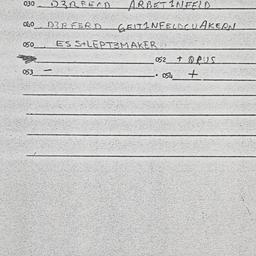 030 D3RFERD ARBET1NFELD
040 D3RFERD GEIT1NFELDCUAKERN
050 ESS+LEPT3MAKER
052 + OPUS
053 - . 054 +